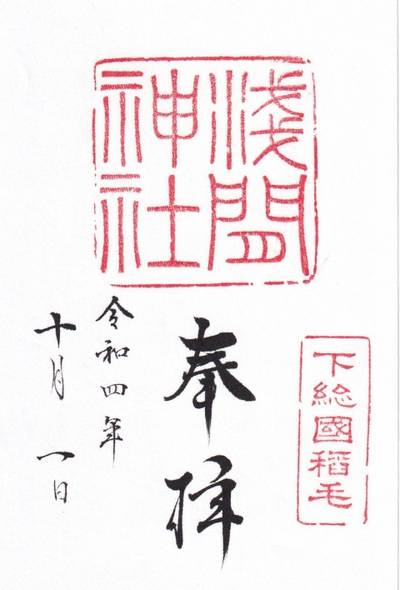 浅間
神社
下総國稻毛
奉拝
令和四年
十月一日